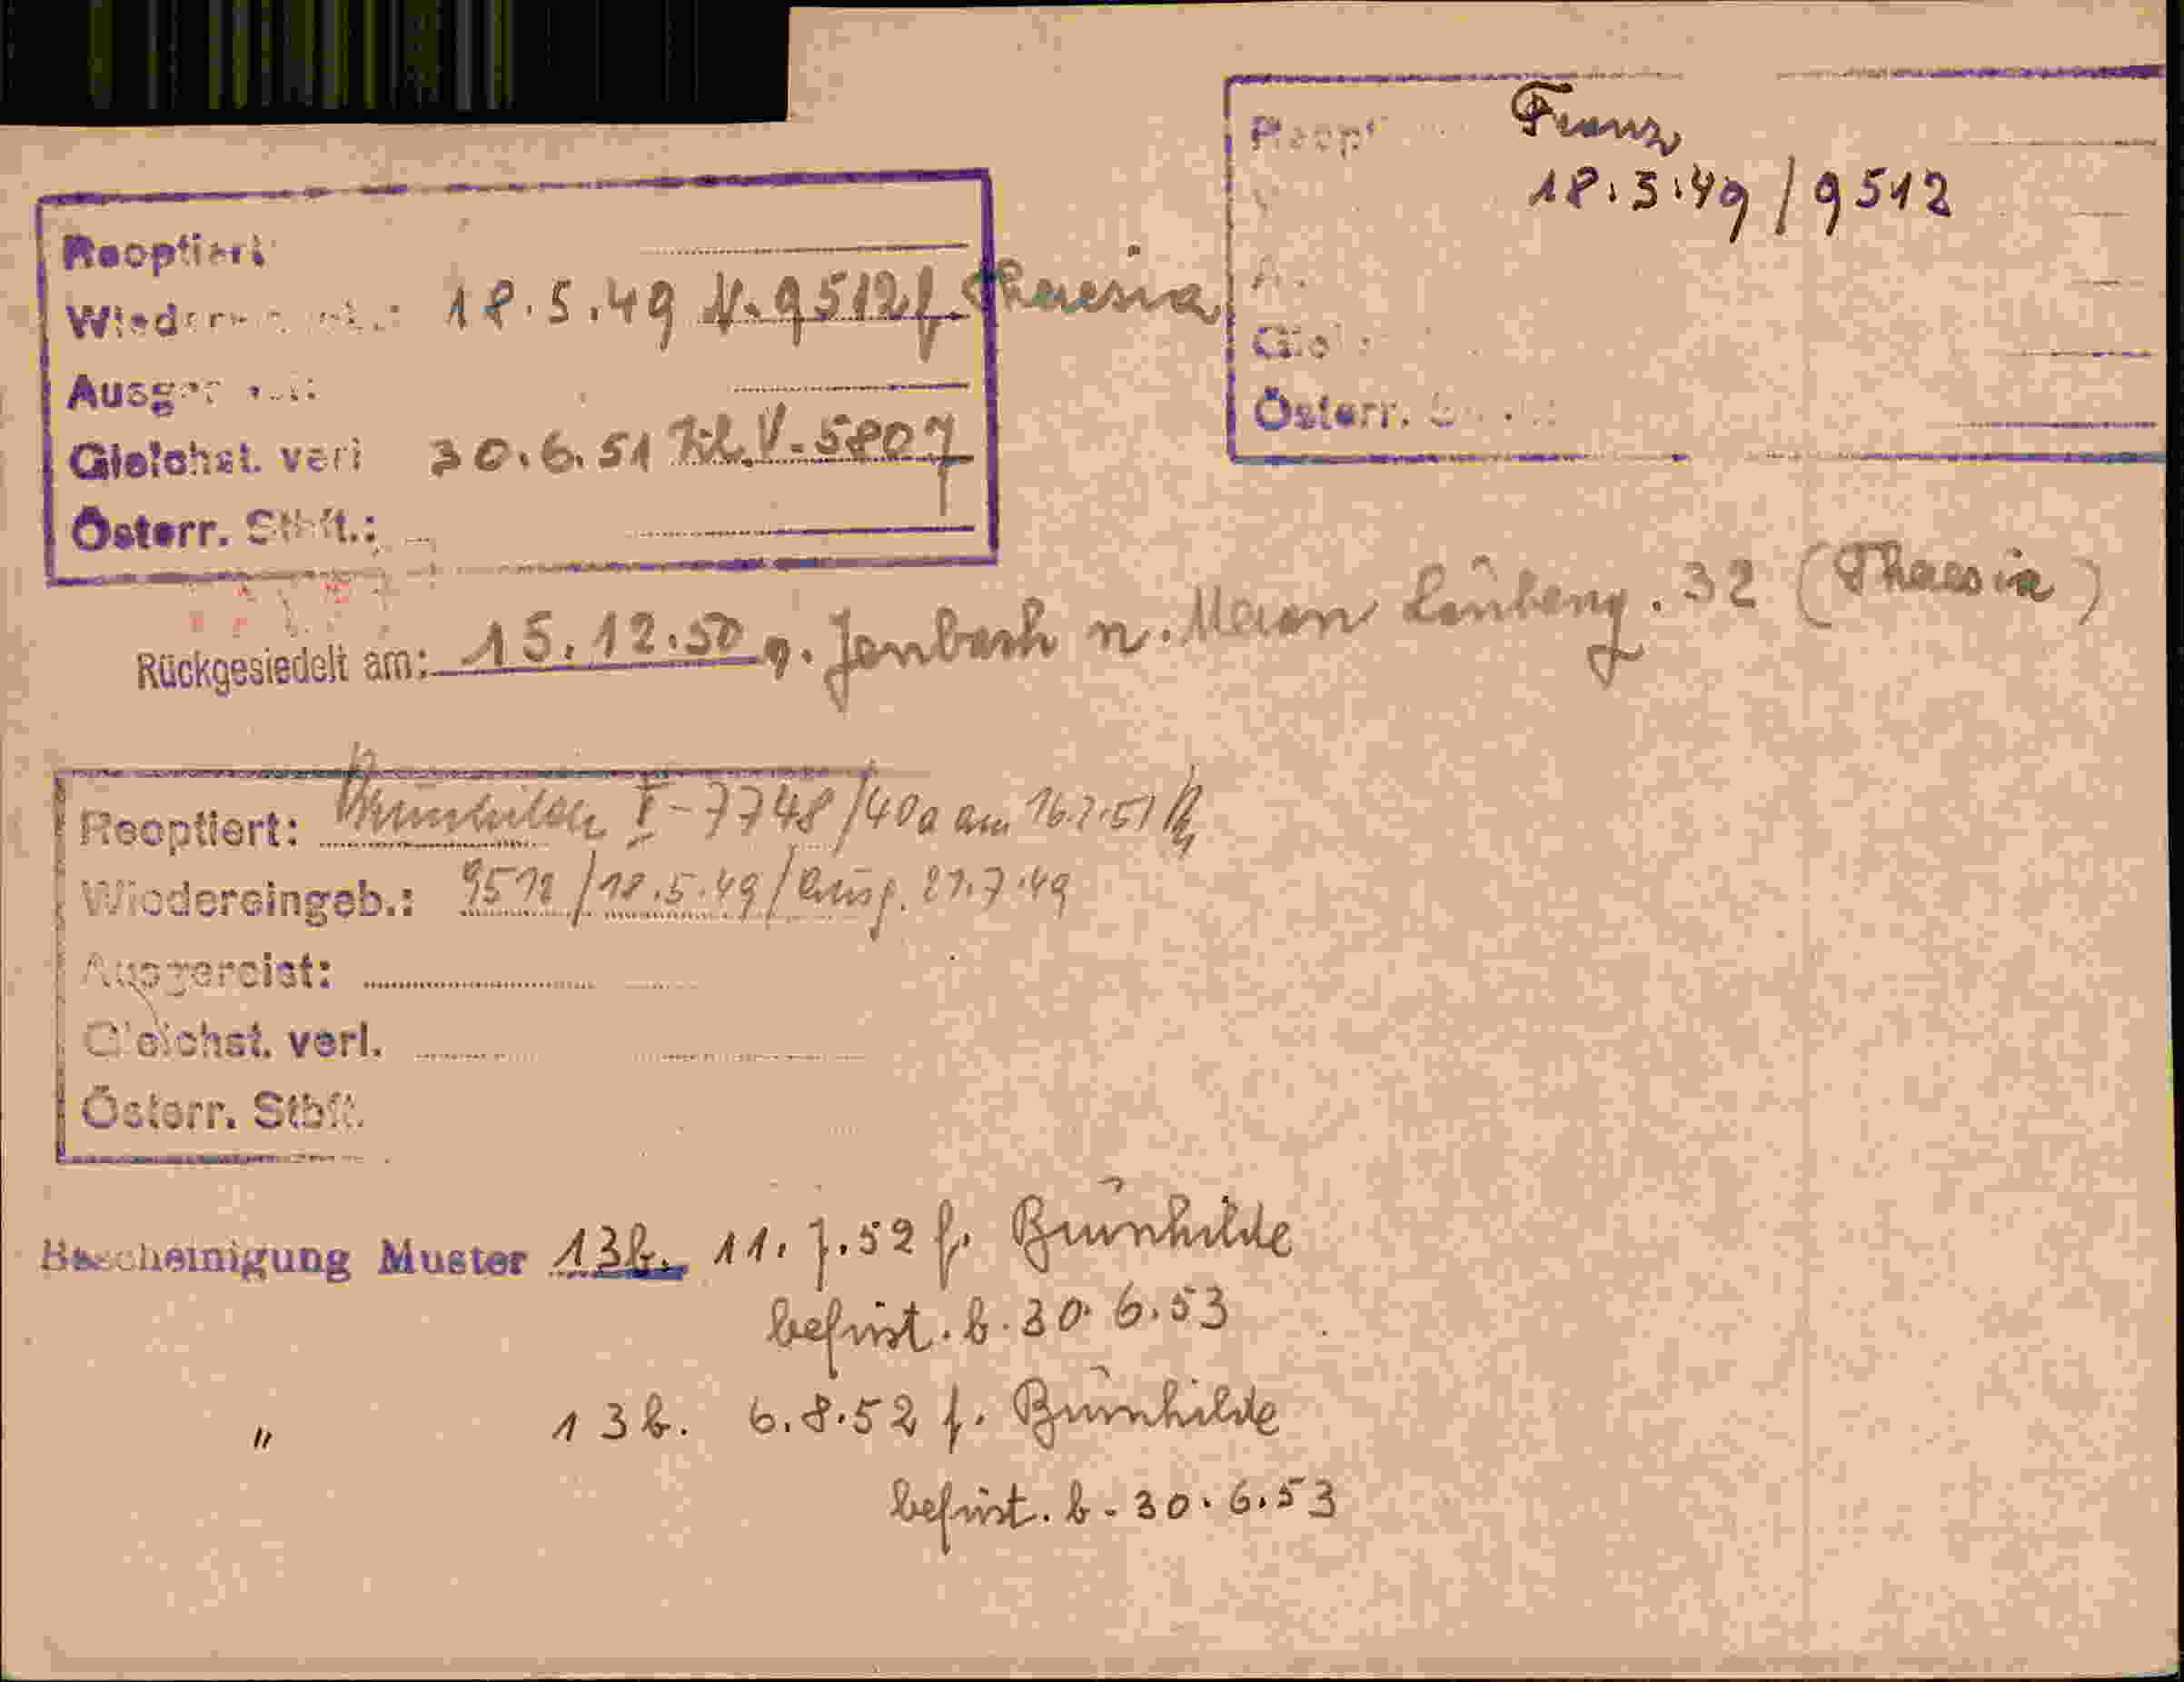 Franz
18.5.49 / 9512
Österr.
Reoptiert
18.5.49 V. 9512 f. Theresia
Gleichst. verl 30.6.51 V. 5807
Österr. Stbft.:
Rückgesiedelt am: 15.12.50 n. Meran 32 (Theresia)
Reoptiert: Brunhilde V-7748/40a am 16.7.51
Wiedereingeb.: 9512 / 18.5.49 / Ausf. 21.7.49
Ausgereist:
Gleichst. verl.
Österr. Stbft.
Bescheinigung Muster 13b. 11.7.52 f. Brunhilde
befrist. b. 30.6.53
" 13b. 6.8.52 f. Brunhilde
befrist. b. 30.6.53